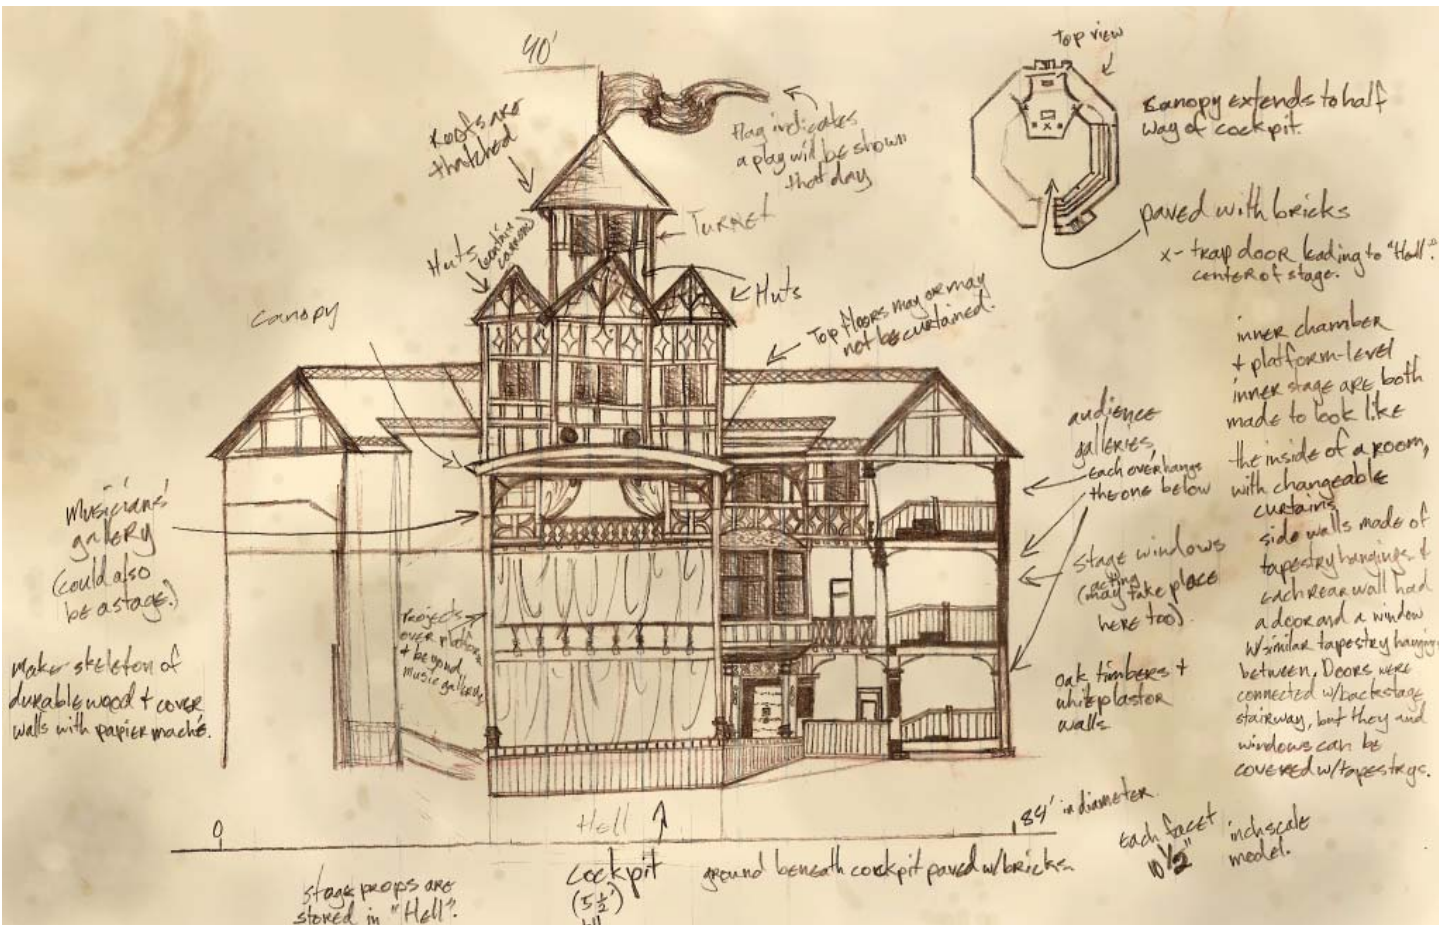 40'
Top view
Roofs are
thatched
flag indicates
a play will be shown
that day
Canopy extends to half
way of cockpit.
Turret
paved with bricks
x- trap door leading to "Hell".
center of stage.
Huts
(contain
cannon)
Huts
Canopy
Top floors may or may
not be curtained.
inner chamber
& platform-level
inner stage are both
made to look like
the inside of a room,
with changeable
curtains
side walls made of
tapestry hangings &
each rear wall had
a door and a window
w/similar tapestry hanging
between. Doors were
connected w/backstage
stairway, but they and
windows can be
covered w/tapestrys.
audience
galleries,
each overhangs
the one below
Musicians'
gallery
(could also
be a stage.)
stage windows
(acting
may take place
here too).
Projects
over platform
& beyond
music gallery
make skeleton of
durable wood & cover
walls with papier maché.
oak timbers &
white plastor
walls
0
Hell
84' in diameter.
Each facet
10 1/2"
inch scale
model.
stage props are
stored in "Hell".
Cockpit
(5 1/2')
ground beneath cockpit paved w/bricks.